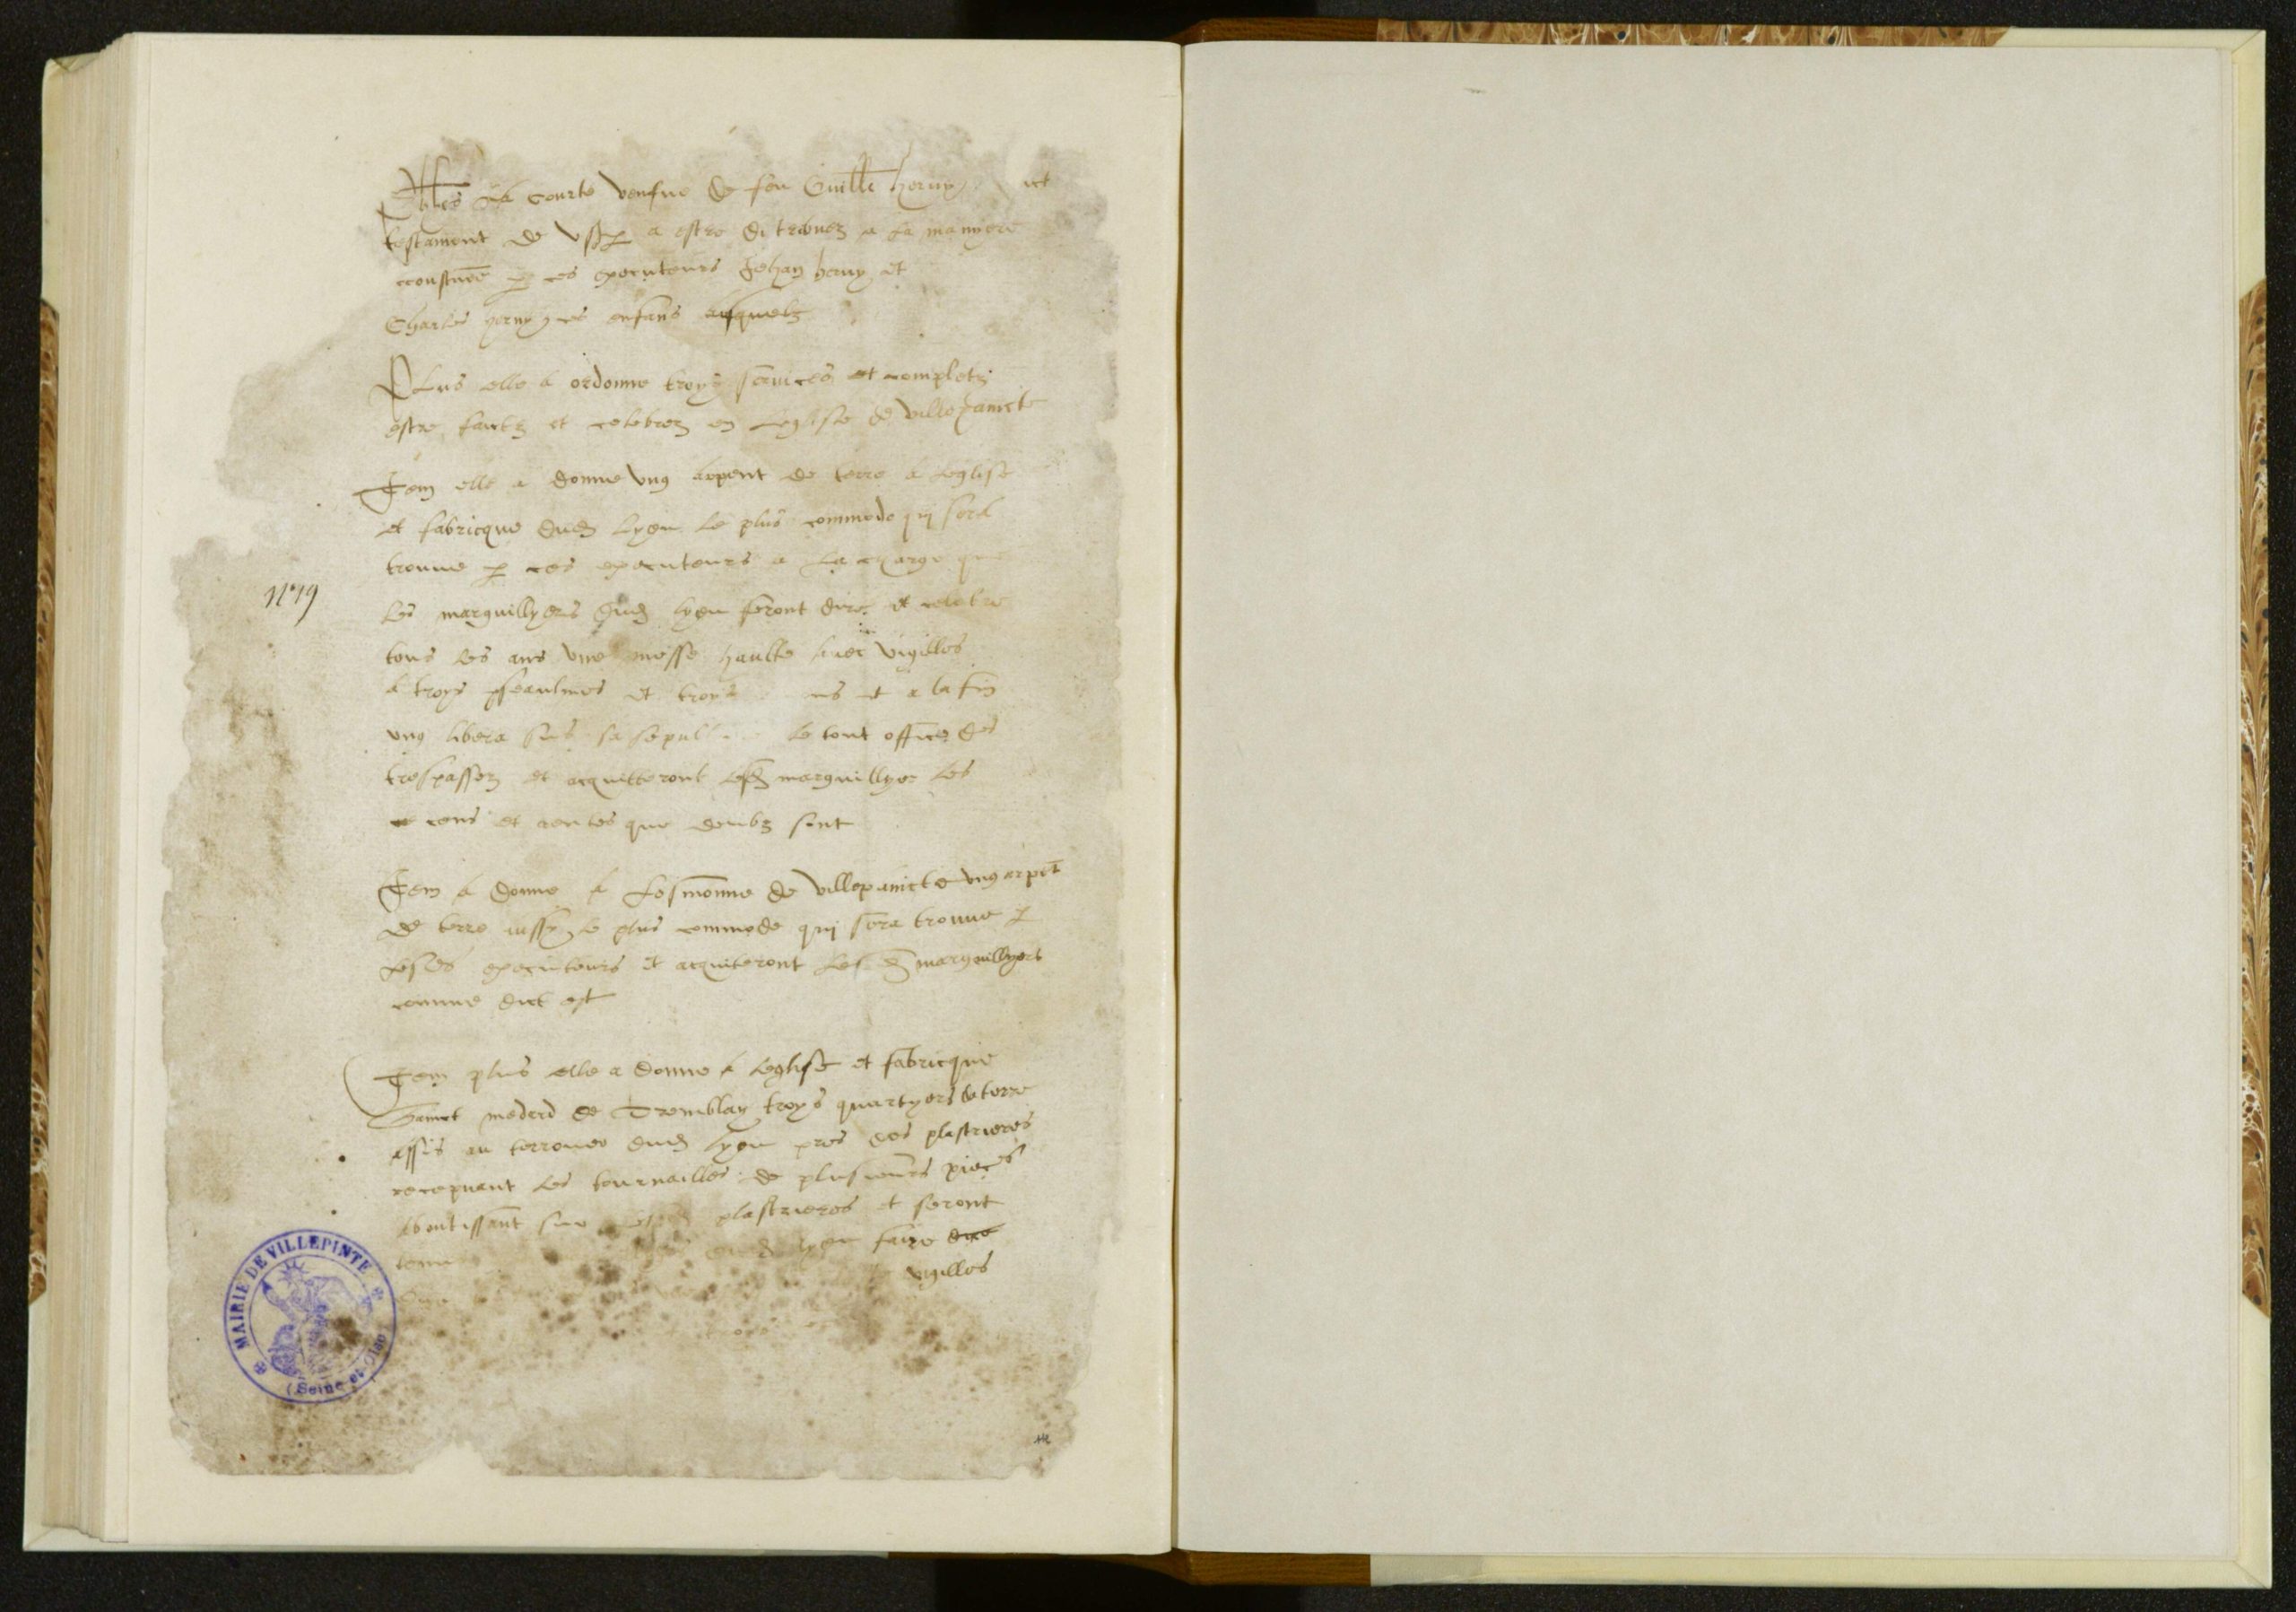 la courte veufve de feu Guillē heruy
testament de a estre di a la manyere
p ces executeurs Jehan heruy et
Charles heruy ces enfans ausquelz
Plus elle a ordonne troys seruices et completz
estre faictz et celebrez en leglise de villepaincte
Item elle a donne ung arpent de terre a leglise
et fabricque dud lyeu le plus commode qij sera
trouue p ces executeurs a la charge que
les marguillyers dud lyeu feront dire et celebre
tous les ans une messe haulte auec vigilles
a troys pseaulmes et troys et a la fin
ung libera sus sa le tout office des
trespassez et acquitteront lesd marguillyer les
cens et rentes que deubz sont
Item a donne a de villepaincte ung arpēt
de terre aussy le plus commode qij sera trouue p
executeurs et acquiteront les d marguillyers
comme dict est
Item plus elle a donne a leglise et fabricque
Sainct mederd de Tremblay troys quartyers de terre
assis au terrouer dud lyeu pres des plastrieres
les tournailles de plusieurs pieces
aboutissant sur plastrieres et seront
dud lyeu faire dire
vigilles
N°19
MAIRIE DE VILLEPINTE
(Seine et Oise)